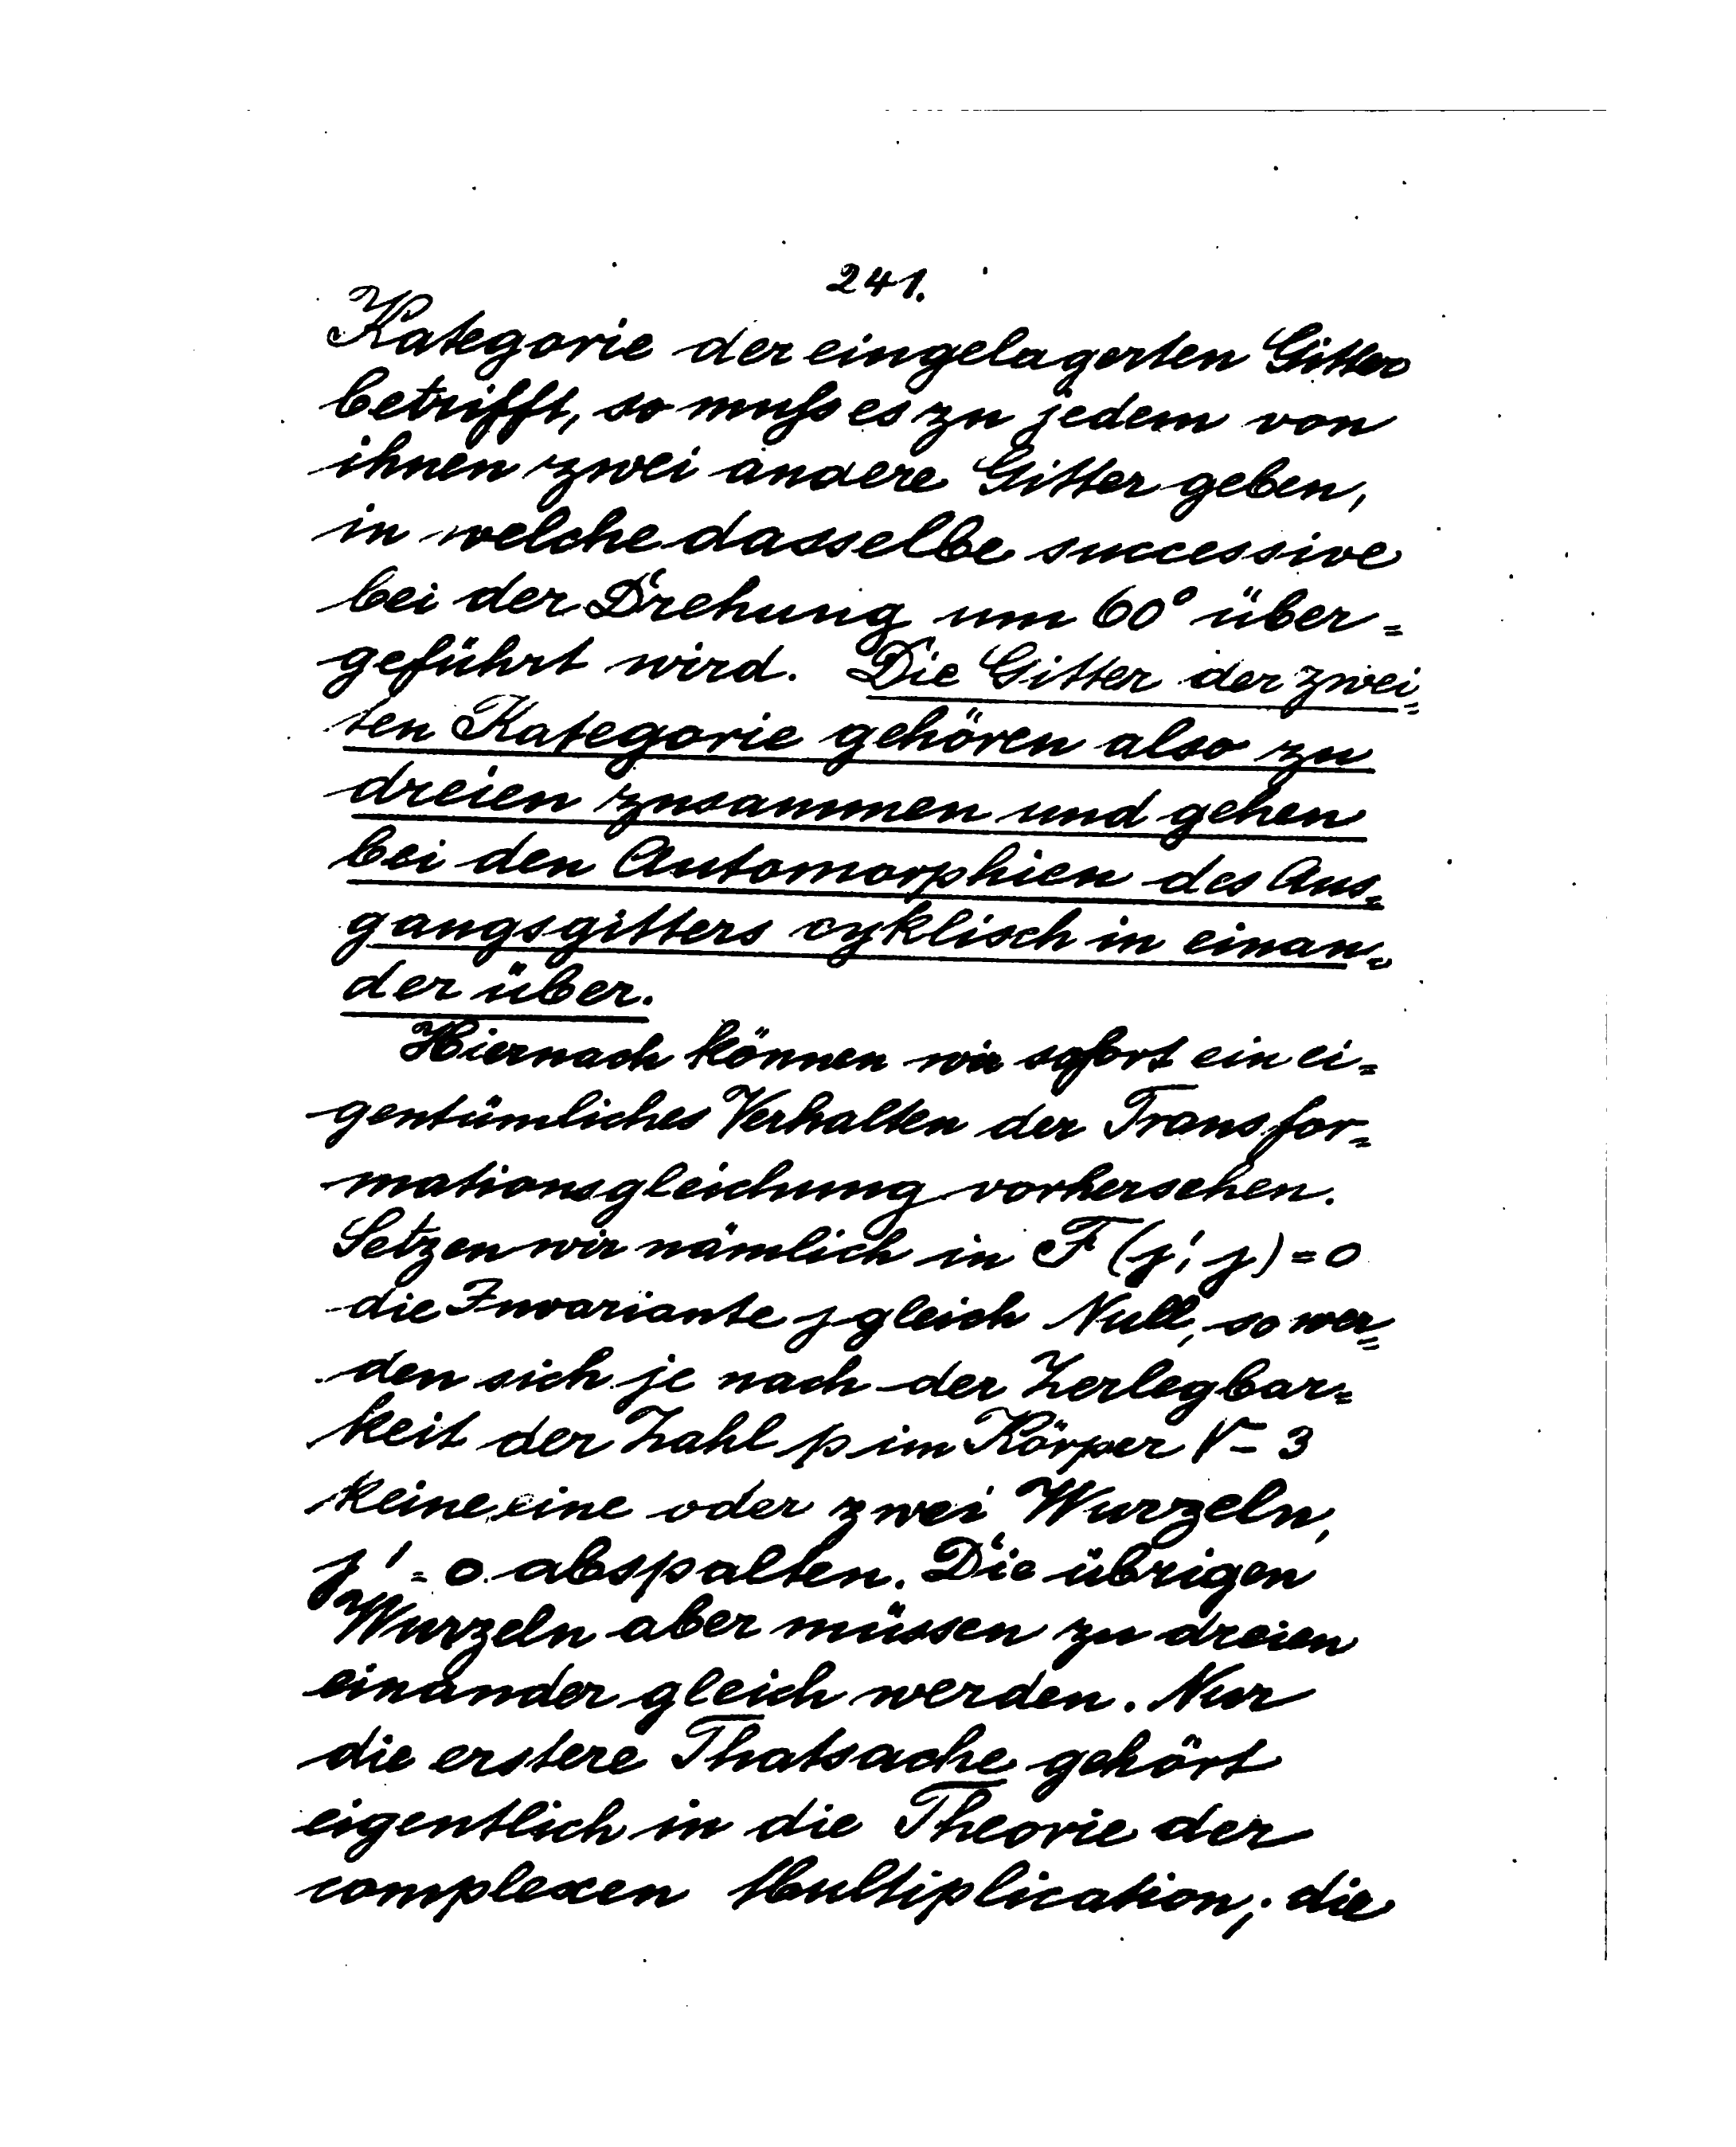 241.
Kategorie der eingelagerten Gitter
betrifft, so muß es zu jedem von
ihnen zwei andere Gitter geben,
in welche dasselbe successive
bei der Drehung um 60° über=
geführt wird. Die Gitter der zwei=
ten Kategorie gehören also zu
dreien zusammen und gehen
bei den Automorphien des Aus=
gangsgitters cyklisch in einan=
der über.
Hiernach können wir sofort ein ei=
gentümliches Verhalten der Transfor=
mationsgleichung vorhersehen.
Setzen wir nämlich in F(j', j) = 0
die Invariante j gleich Null, so wer=
den sich je nach der Zerlegbar=
keit der Zahl p im Körper √-3
keine, eine oder zwei Wurzeln,
j' = 0 abspalten. Die übrigen
Wurzeln aber müssen zu dreien
einander gleich werden. Nur
die erstere Thatsache gehört
eigentlich in die Theorie der
complexen Multiplication; die